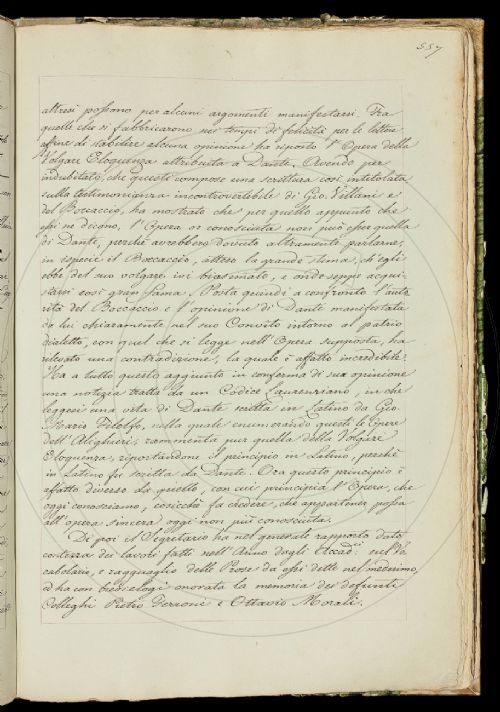 557
altresì possono per alcuni argomenti manifestarsi. Fra
quelle che si fabbricarono nei tempi di felicità per le lettere
affine di stabilire alcuna opinione ha riposto l'Opera della
Volgare Eloquenza attribuita a Dante. Avendo per
indubitato, che questi compose una scrittura così intitolata
sulla testimonianza incontrovertibile di Gio. Villani e
del Boccaccio, ha mostrato che per quello appunto che
essi ne dicono, l'Opera or conosciuta non può esser quella
di Dante, perchè avrebbero dovuto altramente parlarne,
in specie il Boccaccio, attesa la grande stima, ch'egli
ebbe del suo volgare ivi biasimato, e onde seppe acqui-
starsi così gran fama. Posta quindi a confronto l'auto
rità del Boccaccio e l'opinione di Dante manifestata
da lui chiaramente nel suo Convito intorno al patrio
dialetto, con quel che si legge nell'Opera supposta, ha
rilevato una contradizione, la quale è affatto incredibile.
Ha a tutto questo aggiunto in conferma di sua opinione
una notizia tratta da un Codice Laurenziano, in che
leggesi una vita di Dante scritta in Latino da Gio.
Mario Filelfo, nella quale enumerando questi le Opere
dell'Alighieri, rammenta pur quella della Volgare
Eloquenza, riportandone il principio in Latino, perchè
in Latino fu scritta da Dante. Ora questo principio è
affatto diverso da quello, con cui principia l'Opera, che
oggi conosciamo, cosicchè fa credere, che appartener possa
all'opera sincera oggi non più conosciuta.
Di poi il Segretario ha nel generale rapporto dato
contezza dei lavori fatti nell'Anno dagli Accad: nel Vo
cabolario, e ragguaglio delle Prose da essi dette nel medesimo,
ed ha con brevi elogi onorata la memoria dei defunti
Colleghi Pietro Ferroni e Ottavio Morali.